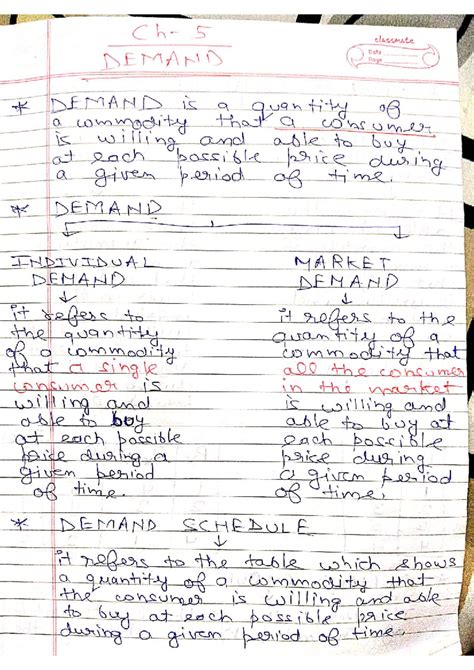 Ch- 5
DEMAND
classmate
Date
Page
* DEMAND is a quantity of
a commodity that a consumer
is willing and able to buy
at each possible price during
a given period of time.
* DEMAND
INDIVIDUAL
DEMAND
it refers to
the quantity
of a commodity
that a single
consumer is
willing and
able to buy
at each possible
price during a
given period
of time.
MARKET
DEMAND
it refers to the
quantity of a
commodity that
all the consumer
in the market
is willing and
able to buy at
each possible
price during
a given period
of time.
* DEMAND SCHEDULE
it refers to the table which shows
a quantity of a commodity that
the consumer is willing and able
to buy at each possible price
during a given period of time.